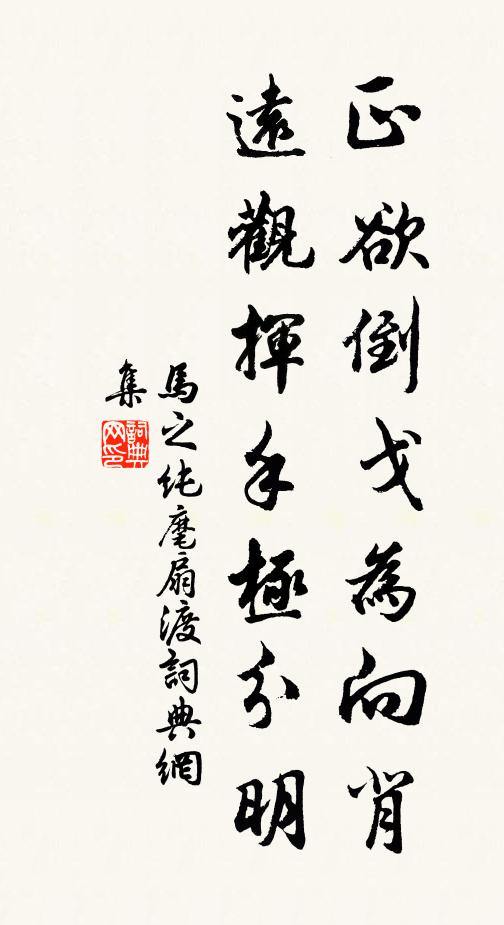 正欲倒戈為向背
遠觀揮手極分明
馬之純麾扇渡詞典網
集
詞典
网印